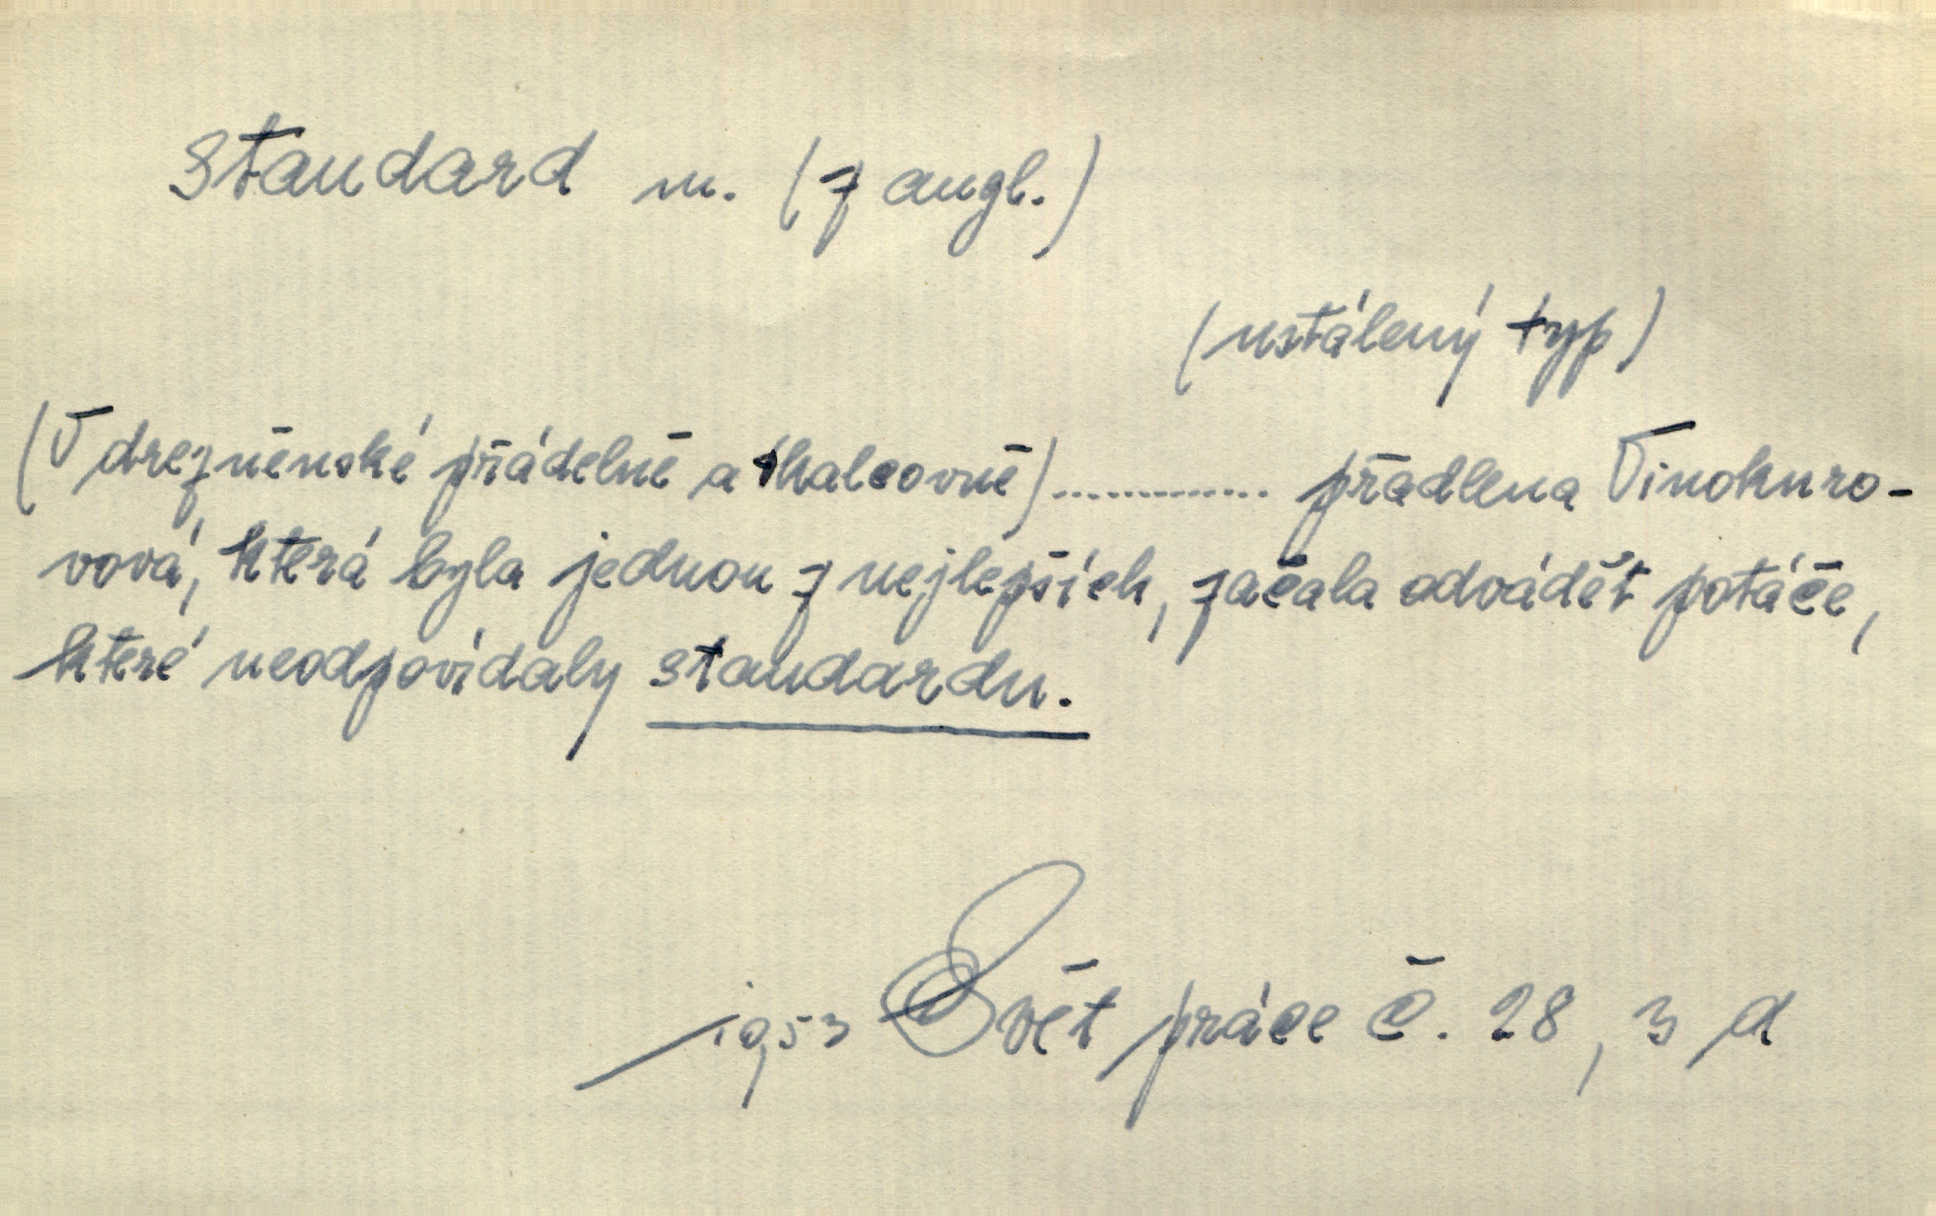 standard m. (z angl.)
(ustálený typ)
(V drezněnské přádelně a tkalcovně) ............. přadlena Vinokuro-
vová, která byla jednou z nejlepších, začala odvádět potáče,
které neodpovídaly standardu.
1953 Svět práce č. 28, 3 d